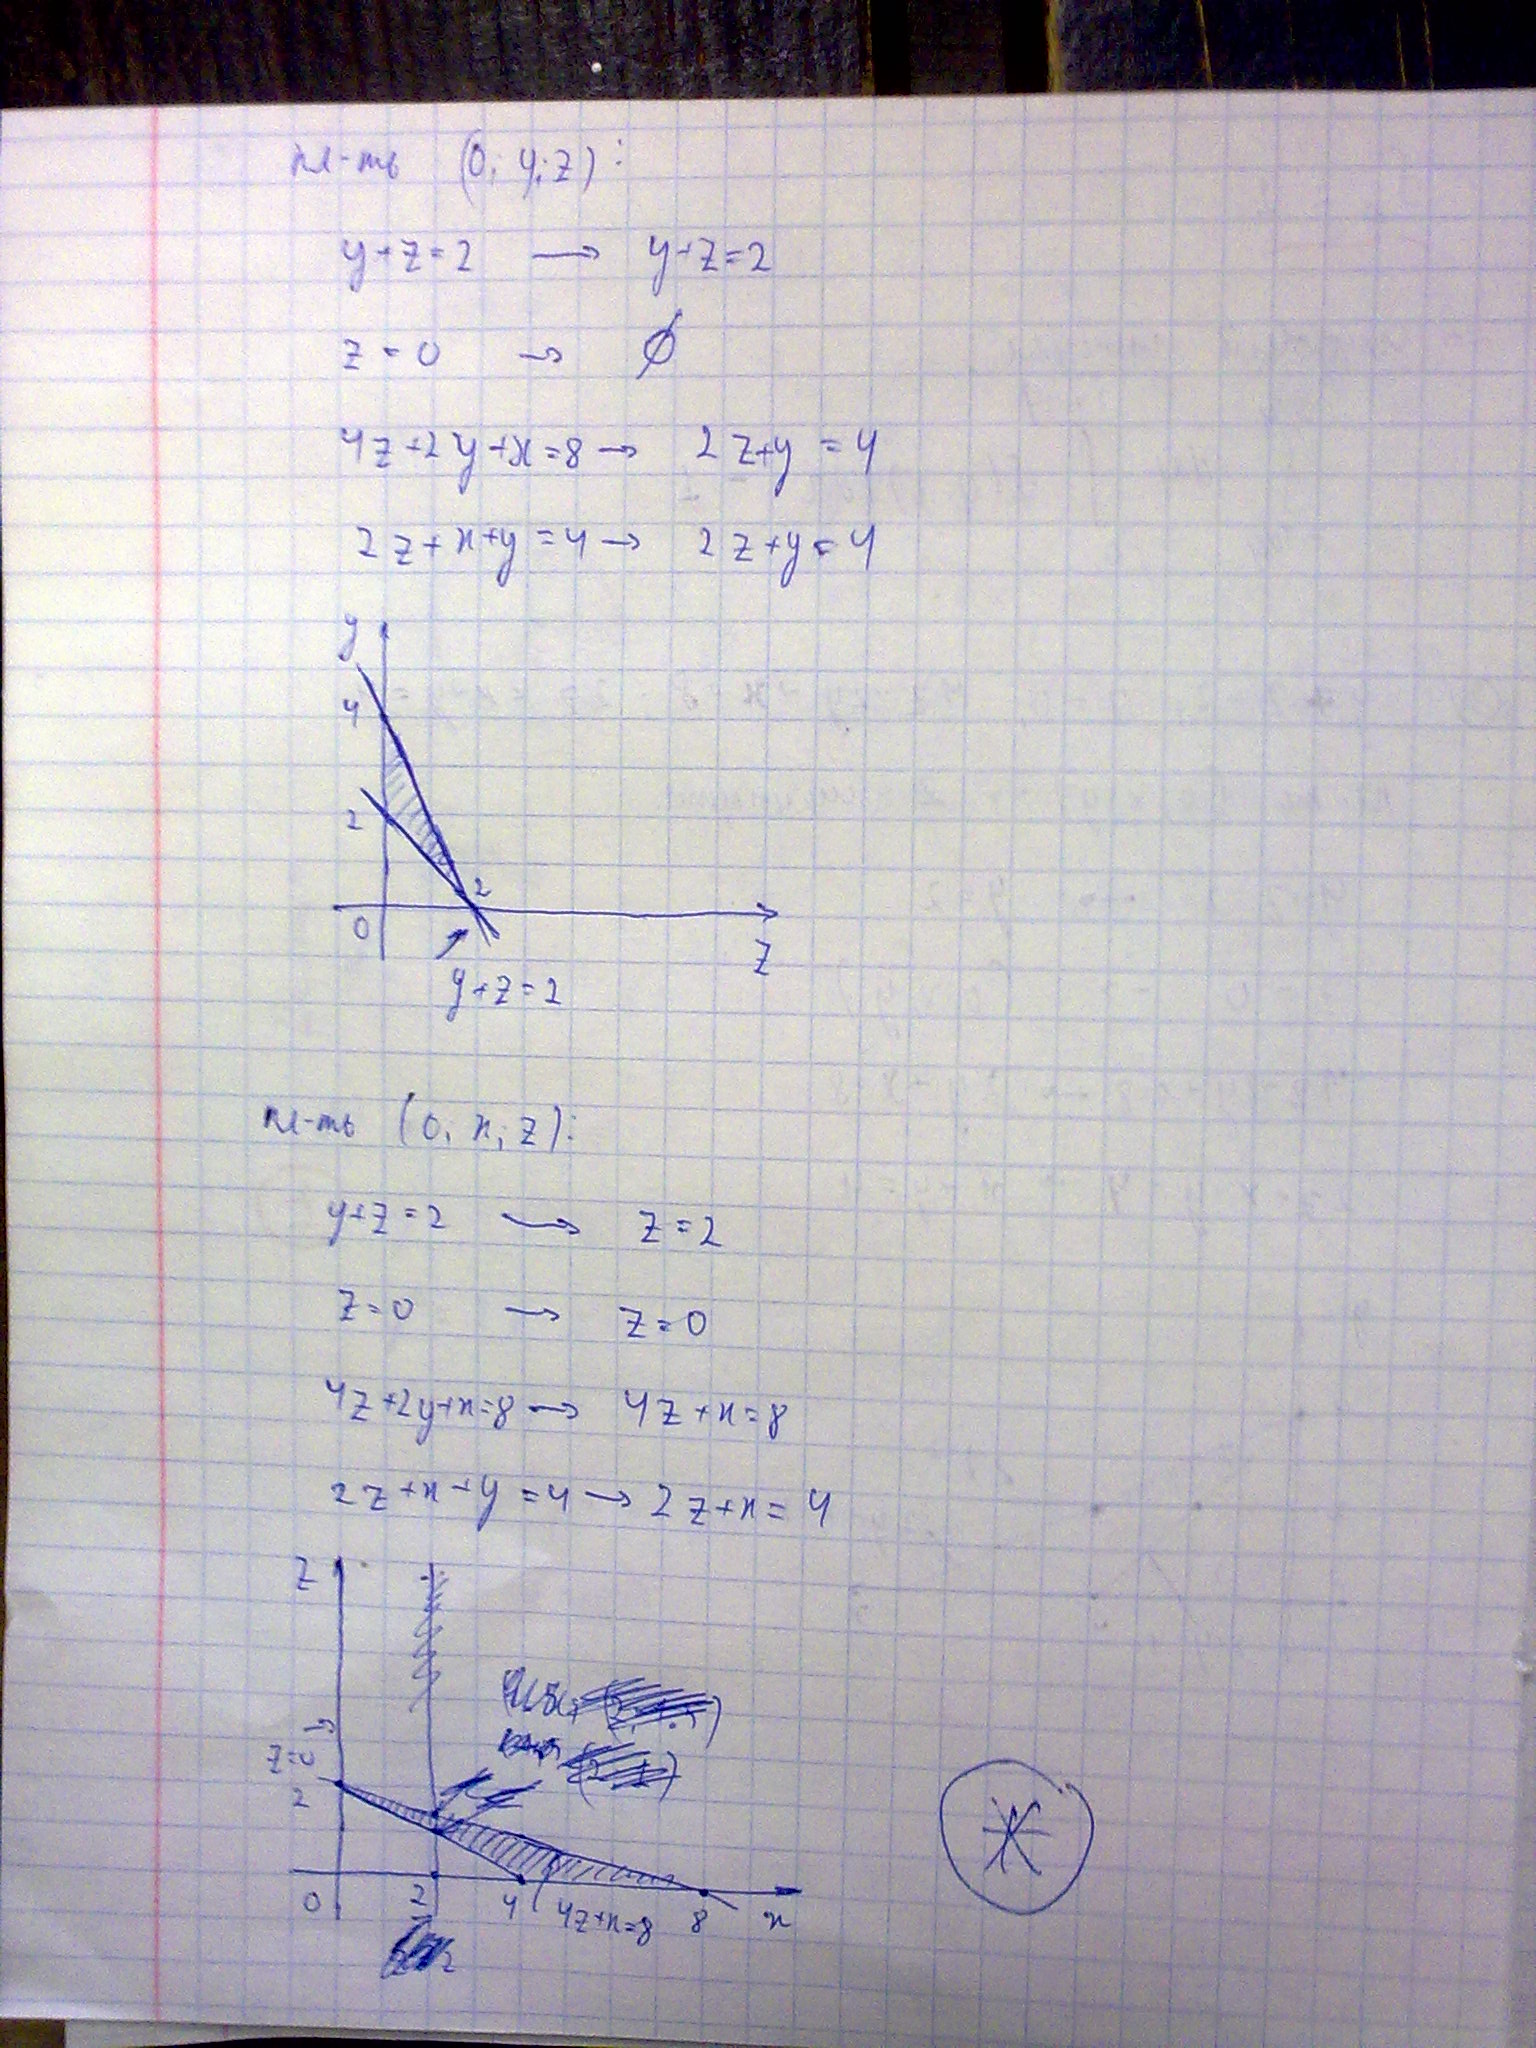 пл-ть (0; y; z):
y+z=2 → y+z=2
z=0 → ∅
4z+2y+x=8 → 2z+y=4
2z+x+y=4 → 2z+y=4
y
4
2
2
0
z
y+z=2
пл-ть (0; x; z):
y+z=2 → z=2
z=0 → z=0
4z+2y+x=8 → 4z+x=8
2z+x+y=4 → 2z+x=4
z
2
0
2
4
4z+x=8
8
x